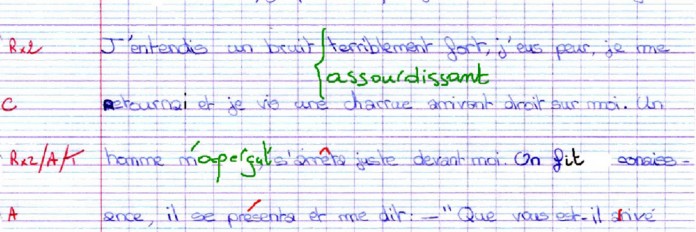 Rx2 J'entendis un bruit { terriblement fort, j'eus peur, je me
assourdissant
C retournai et je vis une charrue arrivant droit sur moi. Un
Rx2/A/T homme m'aperçut, s'arrêta juste devant moi. On fit conaiss-
A ence, il se présenta et me dit : – "Que vous est-il arivé